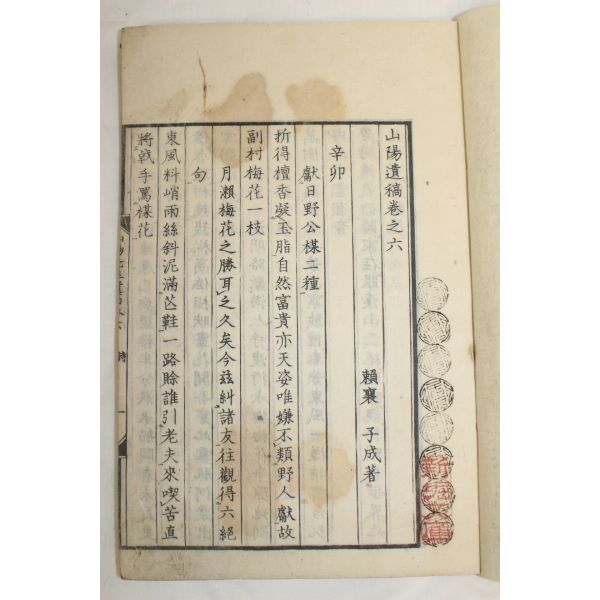 山陽遺稿卷之六
賴襄 子成著
辛卯
獻日野公楳二種
折得檀香凝玉脂自然富貴亦天姿唯嫌不類野人獻故
副村梅花一枝
月瀨梅花之勝耳之久矣今玆糾諸友往觀得六絕
句
東風料峭雨絲斜泥滿芒鞋一路賒誰引老夫來喫苦直
將戟手罵楳花
詩
一